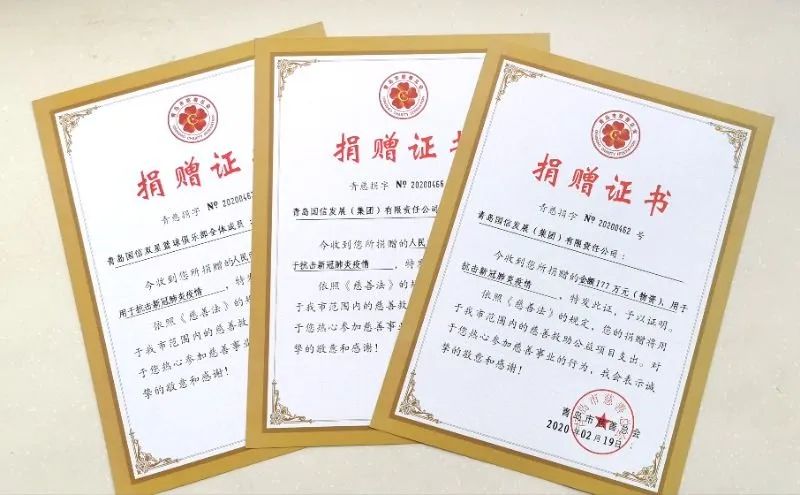 捐赠证
青慈捐字 № 2020046
青岛国信双星篮球俱乐部全体成员:
今收到您所捐赠的人民
用于抗击新冠肺炎疫情,特
依照《慈善法》的规
于我市范围内的慈善救
于您热心参加慈善事业
挚的敬意和感谢!
捐赠证书
青慈捐字 № 20200466
青岛国信发展(集团)有限责任公司
今收到您所捐赠的人民
于抗击新冠肺炎疫情,特发
依照《慈善法》的
于我市范围内的慈善救
于您热心参加慈善事
挚的敬意和感谢!
青岛市慈善总会
QINGDAO CHARITY FEDERATION
捐赠证书
青慈捐字 № 20200468 号
青岛国信发展(集团)有限责任公司:
今收到您所捐赠的金额177万元(物资),用于
抗击新冠肺炎疫情,特发此证,予以证明。
依照《慈善法》的规定,您的捐赠将用
于我市范围内的慈善救助公益项目支出。对
于您热心参加慈善事业的行为,我会表示诚
挚的敬意和感谢!
青岛市慈善总会
2020年02月19日